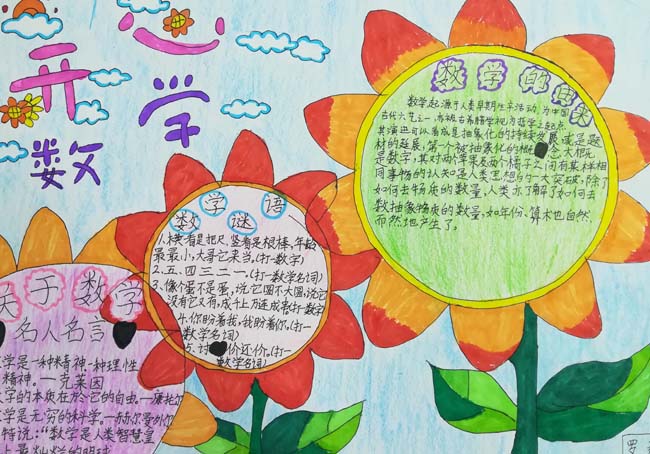 开心
数学
数学的由来
数学起源于人类早期生产活动,为中国
古代六艺之一,亦被古希腊学视为哲学之起点.
其演进可以看成是抽象化的持续发展,或是题
材的延展,第一个被抽象化的概念大概
是数字,其对两个苹果及两个橘子之间有某样相
同事物的认知是人类思想的一大突破,除了
如何去物质的数量人类亦了解了如何去
数抽象物质的数量,如年份、算术也自然
而然地产生了。
数学谜语
1.横看是把尺,竖着是根棒,年龄
最最小,大哥它来当.(打一数字)
2.五、四三二一.(打一数学名词)
3.像个蛋不是蛋,说它圆不大圆,说它
没有它又有,成千上万连成串(打一数字)
4.你盼着我,我盼着你.(打一
数学名词)
5.讨价还价.(打一
数学名词)
关于数学
名人名言
学是一种精神一种理性
精神。一克莱因
学的本质在於它的自由.一康托尔
学是无穷的科学。一赫尔曼外尔
特说:“数学是人类智慧皇
上最灿烂的明珠
罗